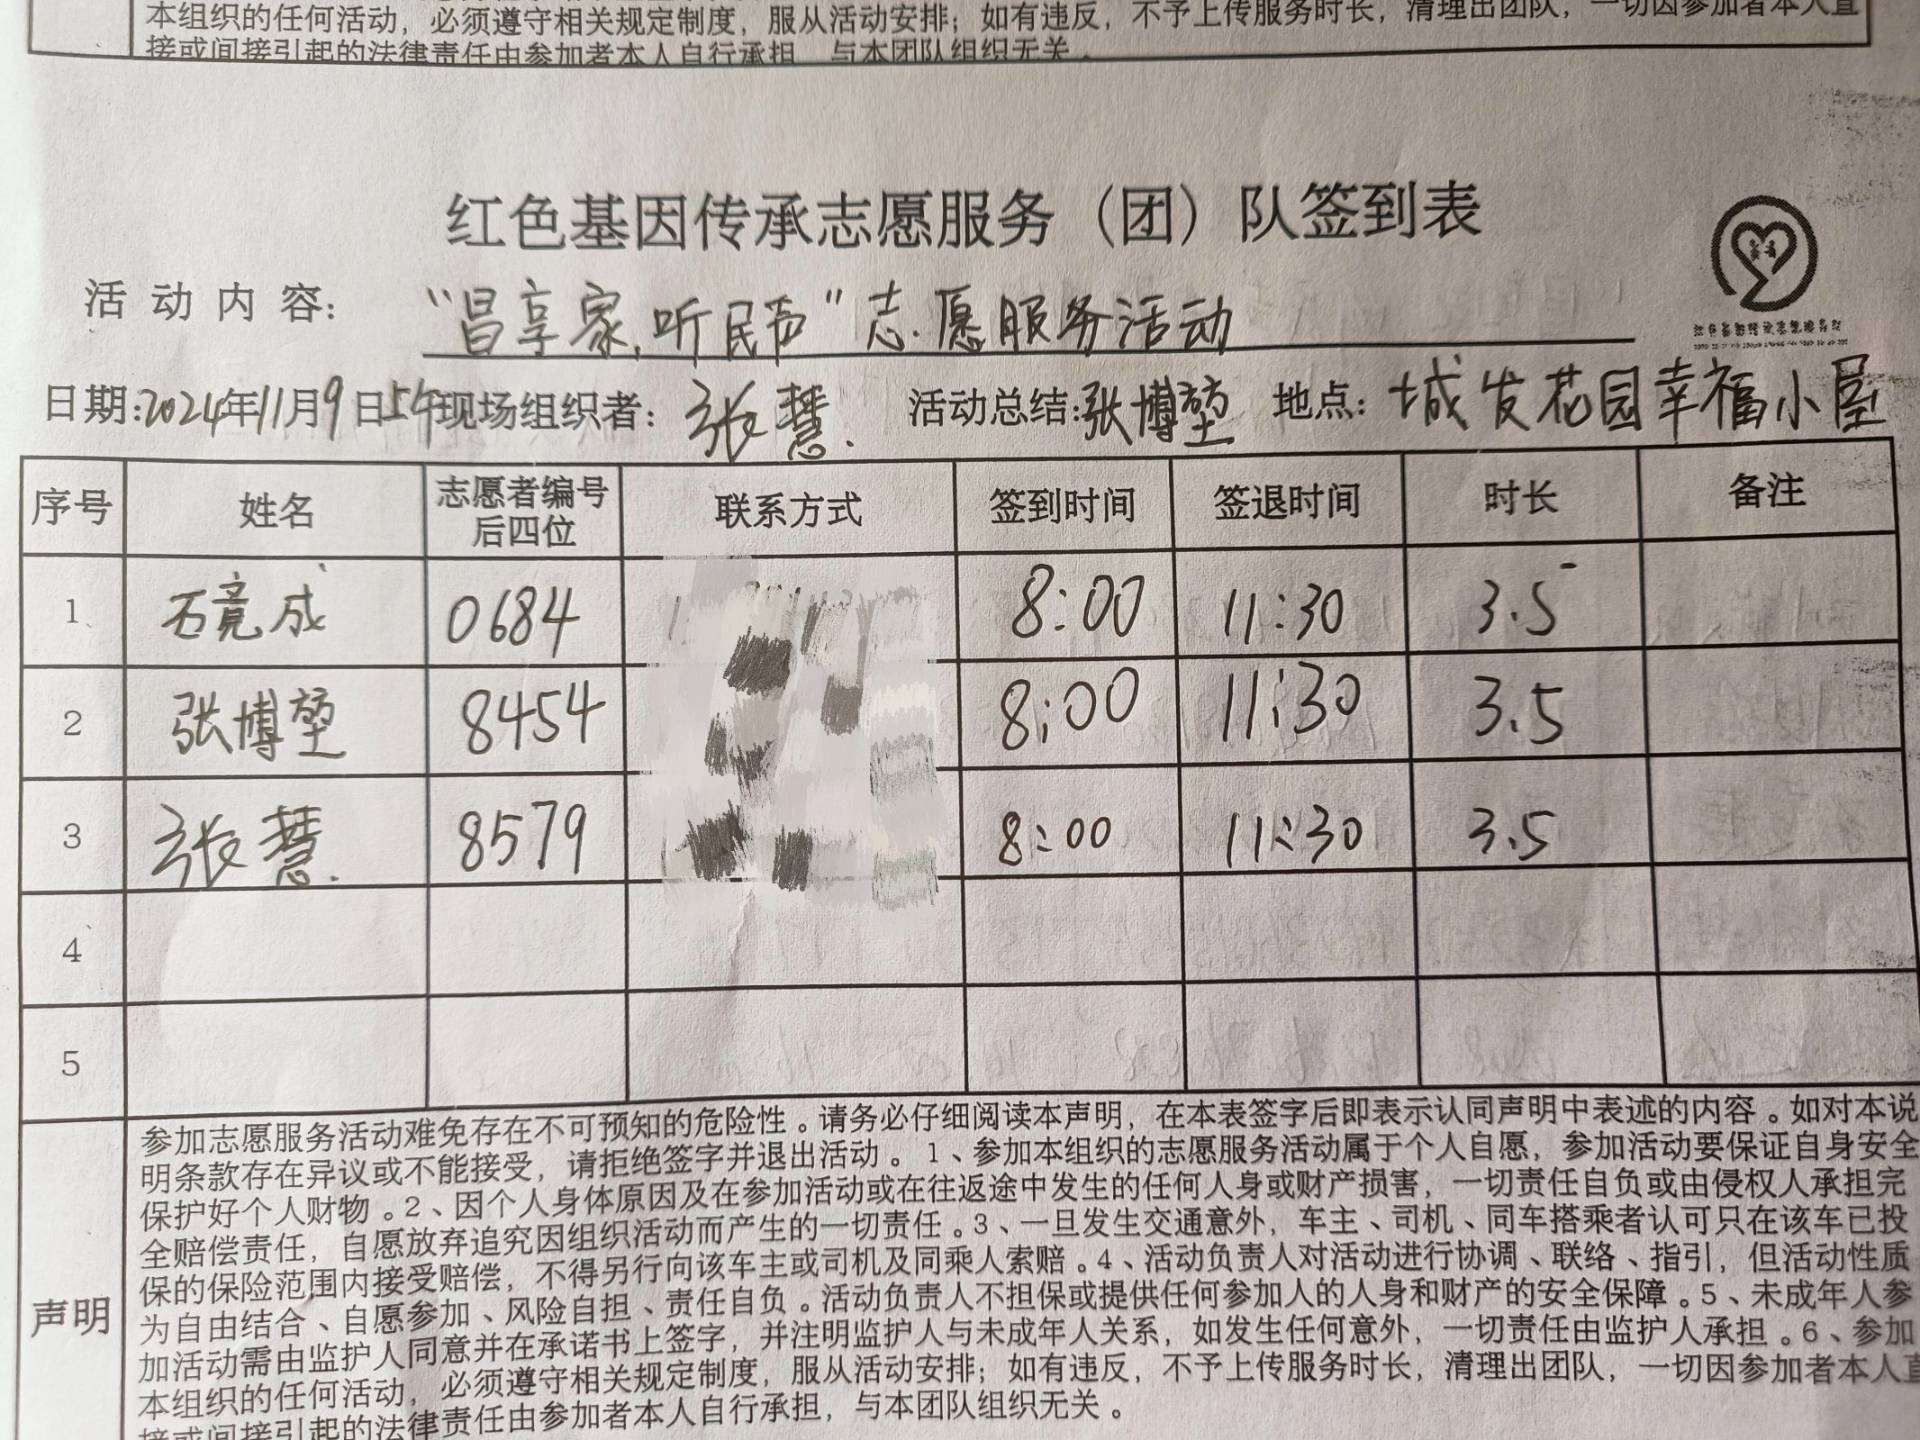 本组织的任何活动，必须遵守相关规定制度，服从活动安排；如有违反，不予上传服务时长，清理出团队，一切因参加者本人直
接或间接引起的法律责任由参加者本人自行承担，与本团队组织无关。
红色基因传承志愿服务（团）队签到表
活动内容：“昌享家,听民声”志愿服务活动
日期:2024年11月9日 现场组织者：张慧. 活动总结:张博堃 地点：城发花园幸福小屋
序号 姓名 志愿者编号后四位 联系方式 签到时间 签退时间 时长 备注
1 石竟成 0684 8:00 11:30 3.5
2 张博堃 8454 8:00 11:30 3.5
3 张慧. 8579 8:00 11:30 3.5
4
5
声明
参加志愿服务活动难免存在不可预知的危险性。请务必仔细阅读本声明，在本表签字后即表示认同声明中表述的内容。如对本说
明条款存在异议或不能接受，请拒绝签字并退出活动。1、参加本组织的志愿服务活动属于个人自愿，参加活动要保证自身安全
保护好个人财物。2、因个人身体原因及在参加活动或在往返途中发生的任何人身或财产损害，一切责任自负或由侵权人承担完
全赔偿责任，自愿放弃追究因组织活动而产生的一切责任。3、一旦发生交通意外，车主、司机、同车搭乘者认可只在该车已投
保的保险范围内接受赔偿，不得另行向该车主或司机及同乘人索赔。4、活动负责人对活动进行协调、联络、指引，但活动性质
为自由结合、自愿参加、风险自担、责任自负。活动负责人不担保或提供任何参加人的人身和财产的安全保障。5、未成年人参
加活动需由监护人同意并在承诺书上签字，并注明监护人与未成年人关系，如发生任何意外，一切责任由监护人承担。6、参加
本组织的任何活动，必须遵守相关规定制度，服从活动安排；如有违反，不予上传服务时长，清理出团队，一切因参加者本人直
接或间接引起的法律责任由参加者本人自行承担，与本团队组织无关。